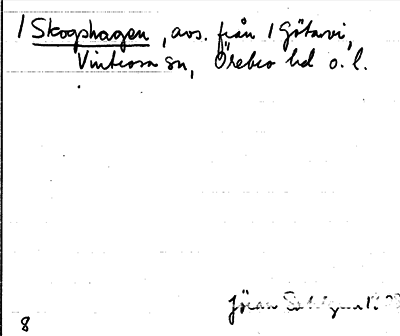 1 Skogshagen, avs. från 1 Götavi,
Vintrosa sn, Örebro hd o. l.
Jöran Sahlgren
8